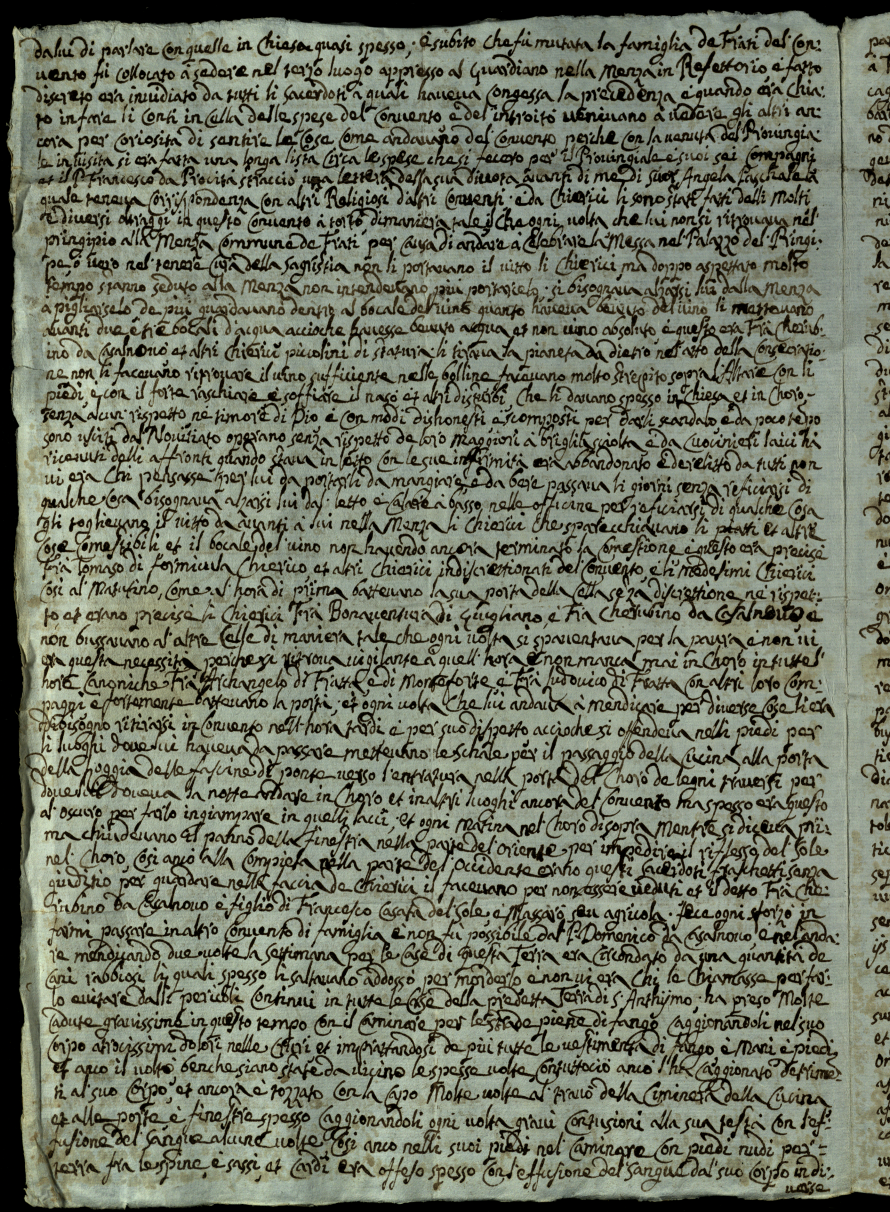 da lui di parlare con quelle in Chiesa quasi spesso, è subito che fù mutata la famiglia de Frati del Con:
uento fù collocato à sedere nel terzo luogo appresso al Guardiano nella Menza in Refettorio è fatto
discreto era inuidiato da tutti li sacerdoti à quali haueua Congessa la precedenza è quando era Chia:
to in fare li Conti in Cella delle spese del Conuento è del introito ueniuano à uedere gli altri an:
cora per Coriosità di sentire le Cose come andauano del Conuento perche con la uenuta del Prouingia:
le in uisita si era fatta una longa lista circa le spese che si fecero per il Prouingiale è suoi sei Compagni
et il P. Francesco da Procita stracciò una lettera della sua diuota auanti di me di Suor Angela Paschale la
quale teneua Corrispondenza con altri Religiosi d'altri Conuenti è da Chierici li sono stati fatti delli Molti
è diuersi straggi in questo Conuento à torto di maniera tale che ogni uolta che lui non si ritrouaua nel
principio alla Menza Commune de Frati per causa di andare à Celebrare la Messa nel Palazzo del Pringi:
pe, ò uero nel tenere cura della Sagristia non li portauano il uitto li Chierici mà doppo aspettato molto
tempo stanno seduto alla Menza non intendeuano più portarielo, si bisognaua alzarsi lui dalla Menza
à pigliarselo de più guardauano dentro al bocale del uino quanto haueua beuuto del uino li metteuano
auanti due è tre bocali d'acqua accioche hauesse beuuto acqua et non uino absoluto è questo era Frà Cherub:
ino da Casalnouo et altri Chierici piccolini di statura li tiraua la pianeta da dietro nel atto della Consecratio:
ne non li faceuano ritrouare il uino sufficiente nelle bolline faceuano molto strepito sopra l'Altare con li
piedi, è con il forte raschiare è soffiare il naso et altri disturbi che li dauano spesso in Chiesa et in Choro,
senza alcun rispetto ne timore di Dio è con modi dishonesti è scomposti per darli scandalo è da poco tempo
sono usciti dal Nouitiato operano senza rispetto de loro Maggiori à briglia sciolta è da Cucinieri laici hà
riceuuti delli affronti quando staua in letto con le sue infirmità era abbandonato è derelitto da tutti non
ui era Chi pensasse per lui da portarli da mangiare è da bere passaua li giorni senza reficiarsi di
qualche cosa bisognaua alzarsi lui dal letto è Calare à basso nelle officine per reficiarsi di qualche Cosa
gli toglieuano il uitto da auanti à lui nella Menza li Chierici che sparecchiauano li piatti et altre
Cose Comestibili et il bocale del uino non hauendo ancora terminato la Comestione è questo era precise
Frà Tomaso di Formicula Chierico et altri Chierici indiscrettionati del Conuento è li medesimi Chierici
Cosi al Matutino, come al hora di prima batteuano la sua porta della Cella senza discrettione ne rispet:
to et erano precise li Chierici Frà Bonauentura di Giugliano, è Frà Cherubino da Casalnouo è
non bussauano al altre Celle di maniera tale che ogni uolta si spauentaua per la paura è non ui
era questa necessità perche si ritroua uigilante à quell'hora è non manca mai in Choro in tutte l'
hore Canoniche Frà Archangelo di Fratta è di Monteforte è Frà Ludouico di Fratta con altri loro Com:
pagni è fortemente batteuano la porta, et ogni uolta che lui andaua à mendicare per diuerse Cose li era
debisogno ritirarsi in Conuento nell'hora tardi è per suo dispetto accioche si offendeua nelli piedi per
li luoghi doue lui haueua da passare metteuano le schale per il passaggio della Cucina alla porta
della Poggia delle fascine di ponte uerso l'entratura nella porta del Choro de legni trauersi per
doue lui doueua la notte andare in Choro et in altri luoghi ancora del Conuento ma spesso era questo
al oscuro per farlo ingiampare in quelli lacci, et ogni Matina nel Choro di sopra mentre si diceua Pri:
ma chiudeuano il panno della finestra nella parte del oriente per impedire il riflesso del Sole
nel Choro, Cosi anco alla Compieta nella parte del occidente erano questi sacerdoti fraschetti senza
giuditio per guardare nella faccia de Chierici il faceuano per non essere ueduti et il detto Frà Che:
rubino da Casanouo è figlio di Francesco Casata del Sole, è Massaro seu agricola. Fece ogni sforzo in
farmi passare in altro Conuento di famiglia è non fu possibile dal P. Domenico da Casalnouo, è nel anda:
re mendicando due uolte la settimana per le Case di questa Terra era circondato da una quantità de
Cani rabbiosi li quali spesso li saltauano addosso per morderlo è non ui era Chi le Chiamasse per far:
lo euitare dalli pericoli Continui in tutte le Case della predetta Terra di S. Anthimo, ha preso Molte
cadute grauissime in questo tempo con il Caminare per le strade piene di fango Caggionandoli nel suo
Corpo atrocissimi dolori nelle et imprattandosi de più tutte le uestimenta di fango è Mani è piedi
et anco il uolto benche siano state da uicino le spesse uolte, Contuttociò anco l'ha Caggionato detrime:
ti al suo Corpo, et ancora è tozzato con la Capo Molte uolte al trauo della Ciminera della Cucina
et alle porte è finestre spesso Caggionandoli ogni uolta graui Contusioni alla sua testa con l'ef:
fusione del Sangue alcune uolte Cosi anco nelli suoi piedi nel Caminare Con piedi nudi per
terra fra le spine, è sassi, et Cardi era offeso spesso con l'effusione del Sangue dal suo Corpo in di:
uerse